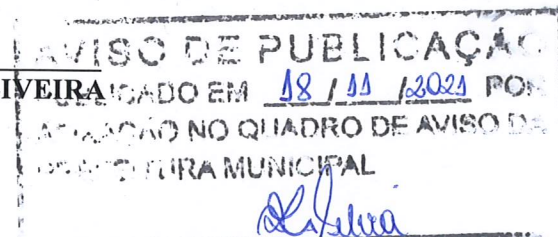 AVISO DE PUBLICAÇÃO
IVEIRA
PUBLICADO EM 18 / 11 / 2021 POR
AFIXAÇÃO NO QUADRO DE AVISO DA
PREFEITURA MUNICIPAL